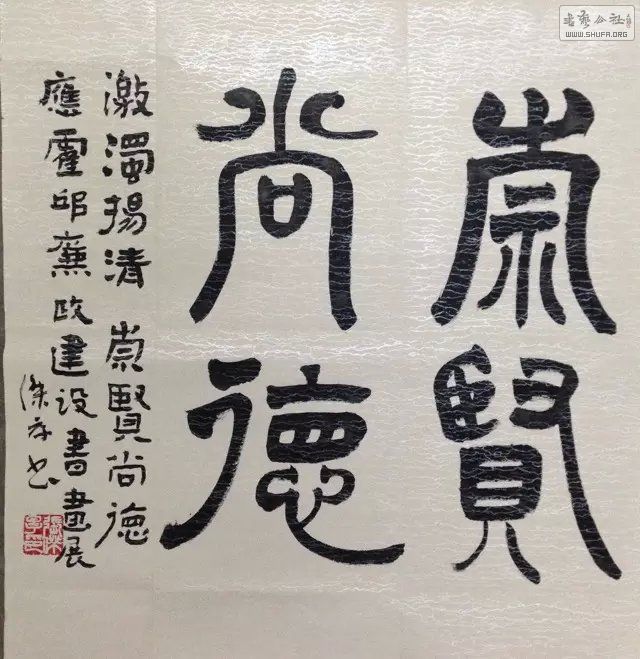 崇賢
尚德
激濁揚清 崇賢尚德
應霍邱廉政建设書畫展
书法公社
WWW.SHUFA.ORG